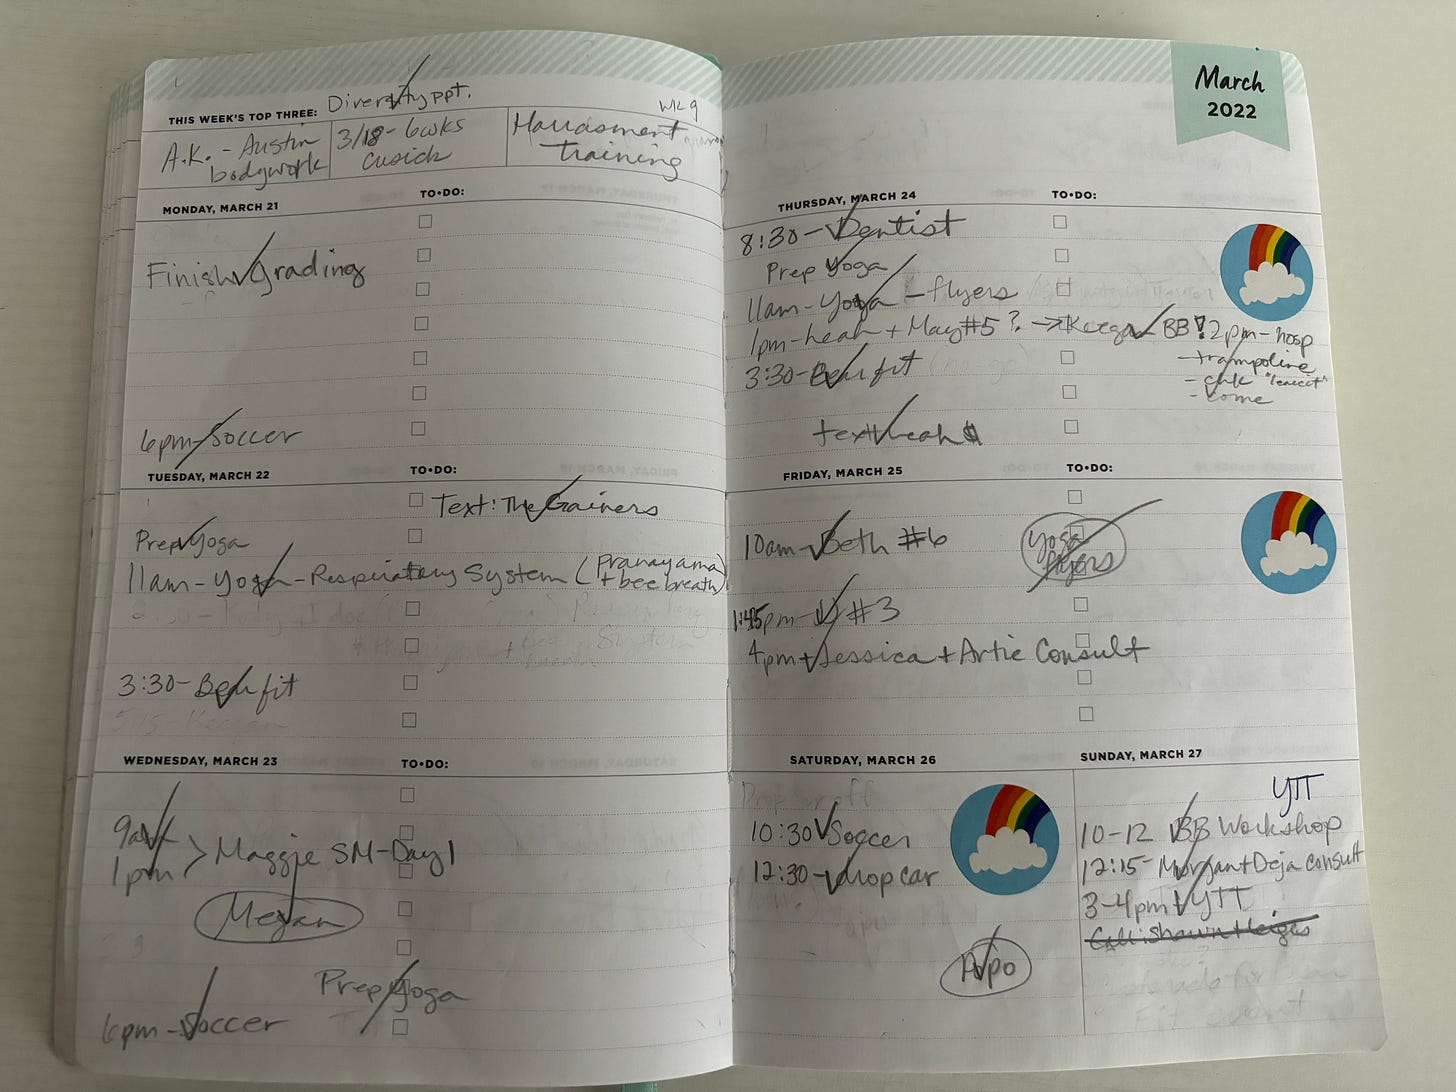 March
2022
THIS WEEK'S TOP THREE: Diversity ppt.
WK 9
A.K. - Austin bodywork
3/18 - 6wks Cusick
Harrasment training
MONDAY, MARCH 21
TO•DO:
Finish Grading
6pm - Soccer
TUESDAY, MARCH 22
TO•DO:
Text: The Gainers
Prep Yoga
11am - Yoga - Respiratory System (Pranayama + bee breath)
3:30 - Benefit
5:15 - Keegan
WEDNESDAY, MARCH 23
TO•DO:
9am
1pm > Maggie SM - Day 1
Megan
Prep Yoga
6pm - Soccer
THURSDAY, MARCH 24
TO•DO:
8:30 - Dentist
Prep Yoga
11am - Yoga - flyers
1pm - Leah + May #5? → Keegan BB! 2pm - hosp
- trampoline
3:30 - Benefit (no-go)
- come
text Leah $
FRIDAY, MARCH 25
TO•DO:
10am - Beth #6
Yoga flyers
1:45pm - #3
4pm + Jessica + Artie Consult
SATURDAY, MARCH 26
10:30 Soccer
12:30 - drop car
Apo
SUNDAY, MARCH 27
YTT
10-12 BB Workshop
12:15 - Morgan + Deja consult
3-4pm YTT
Call: Shawn +